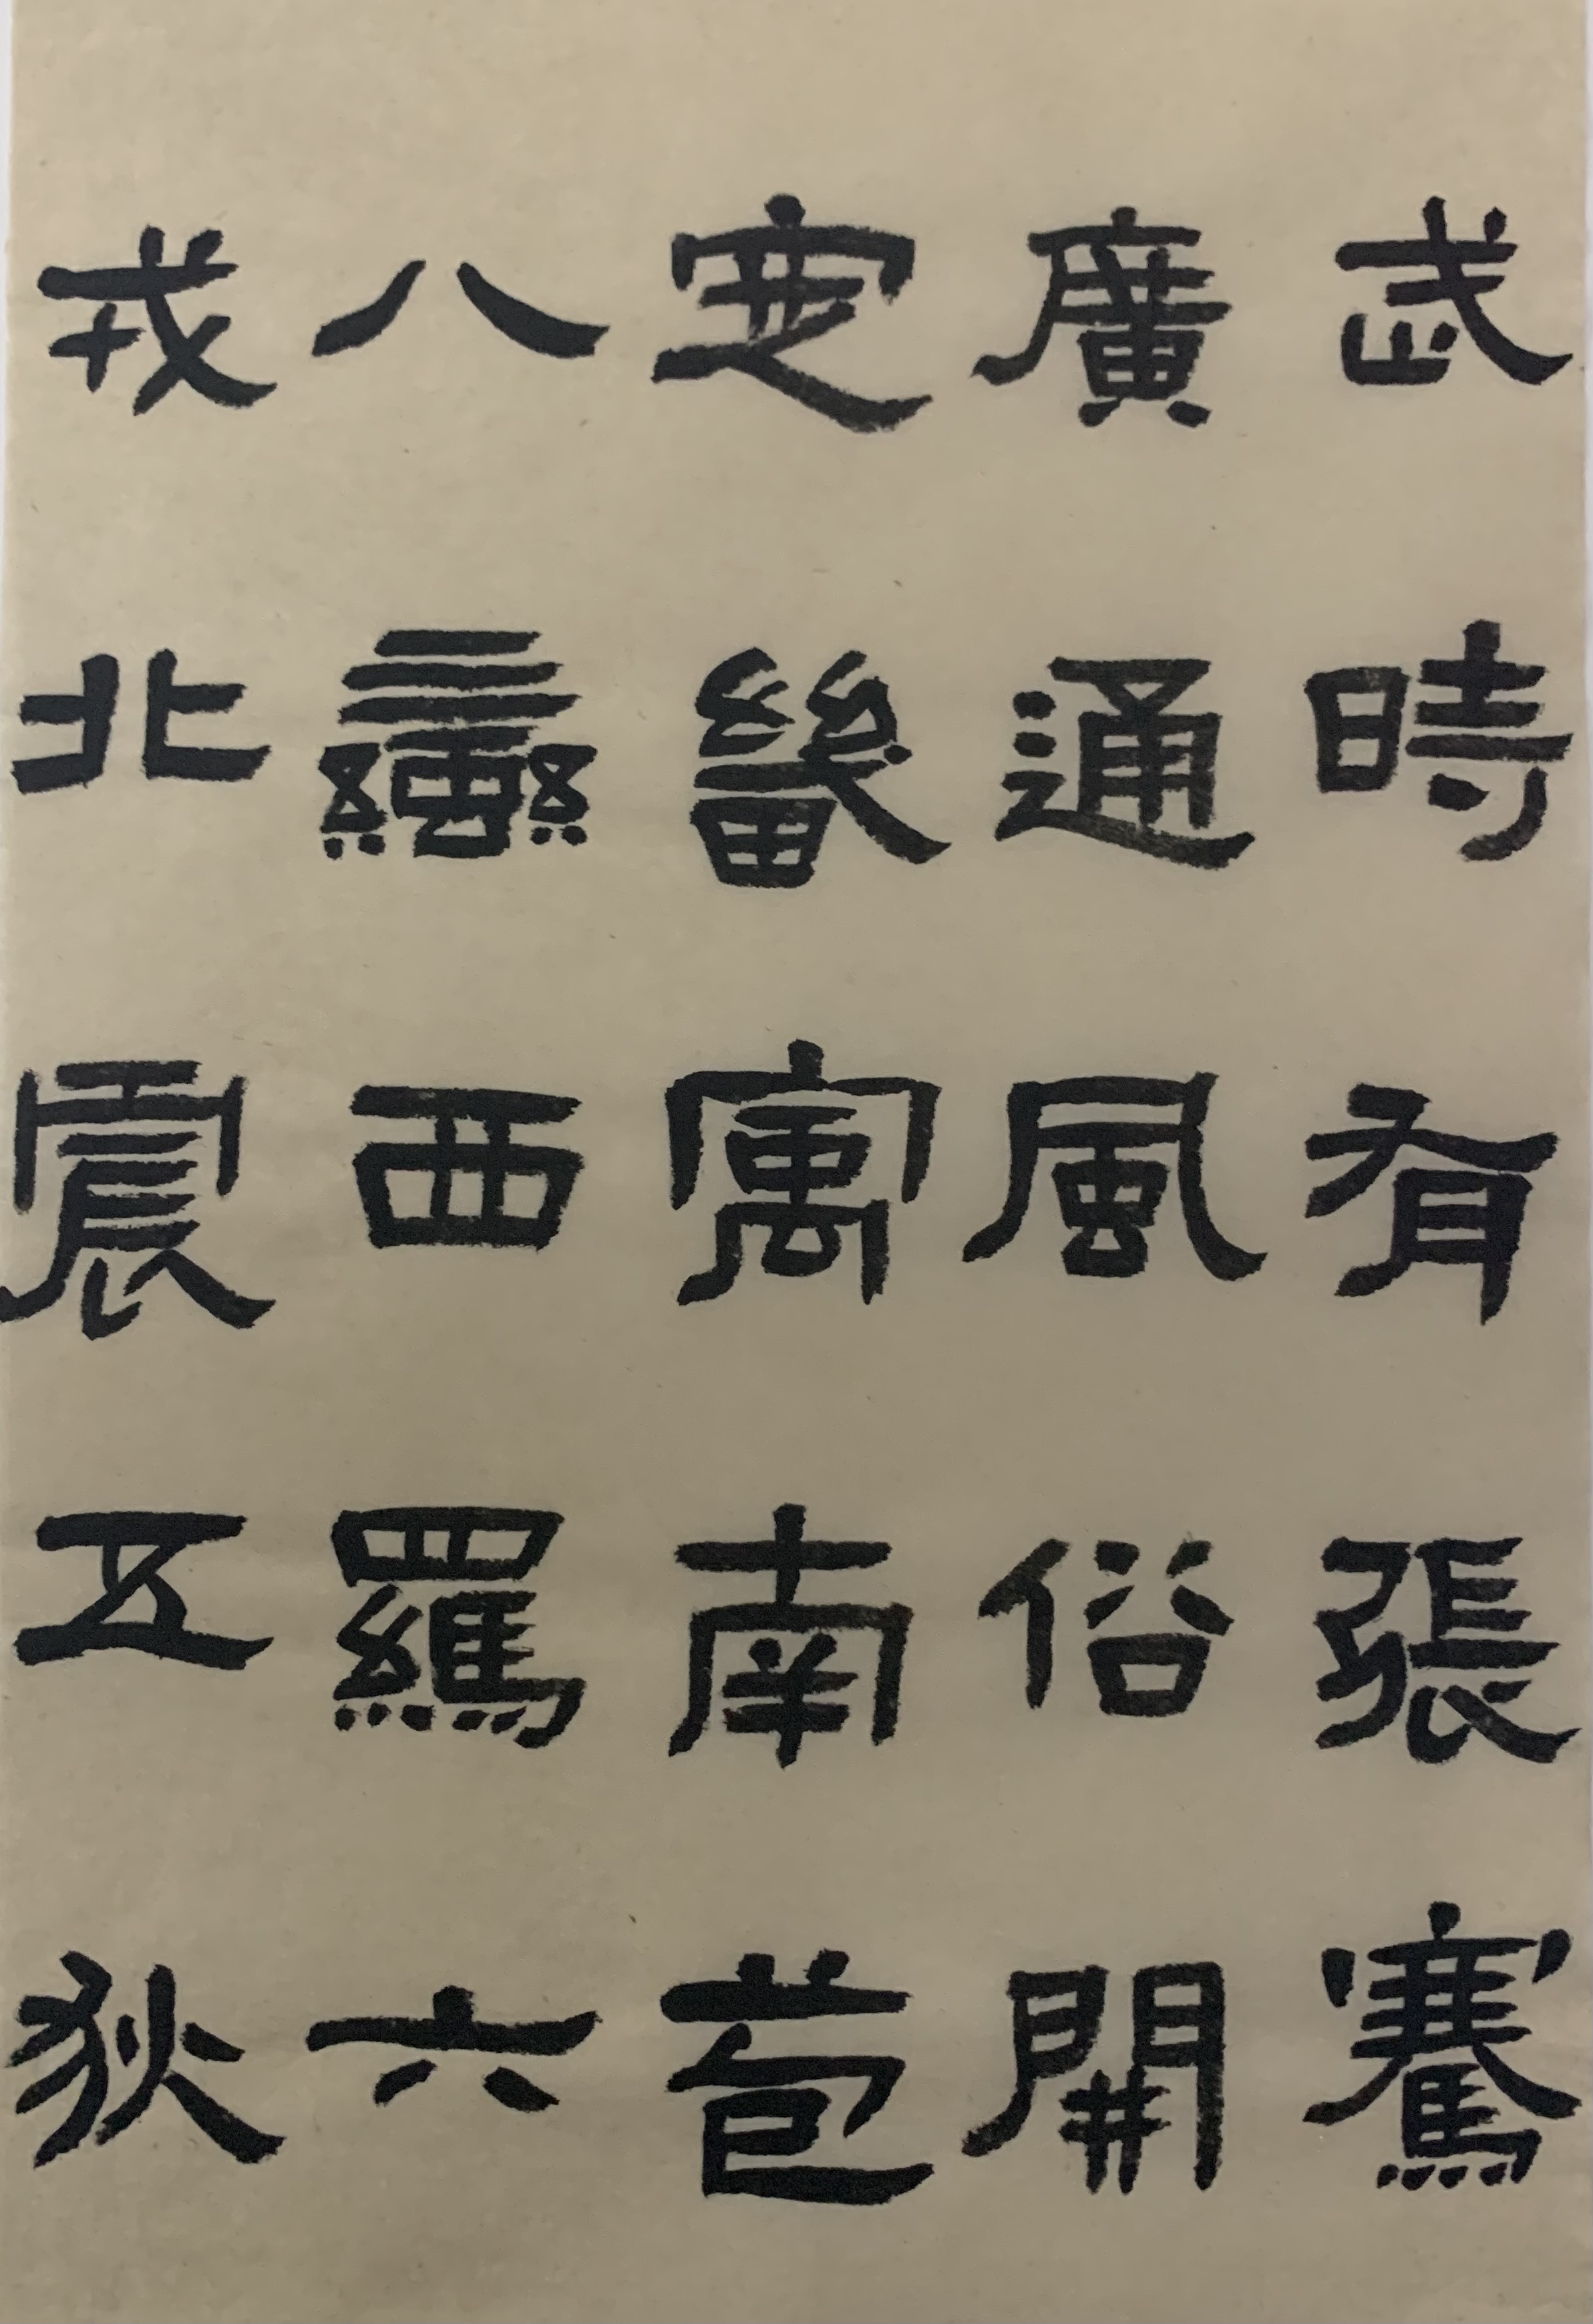 武時有張騫
廣通風俗開
定畿㝢南苞
八蠻西羈六
戎北震五狄